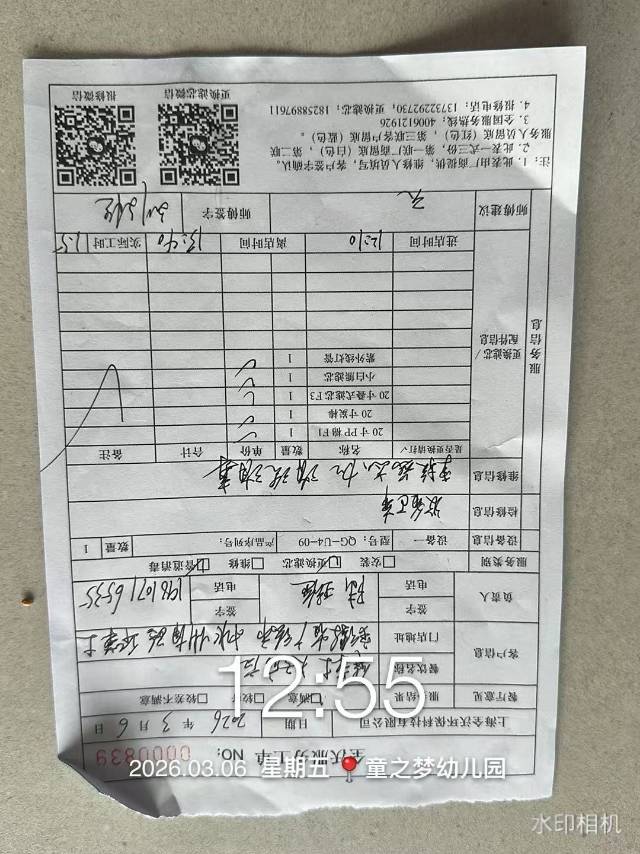 全沃服务上单 NO: 0000839
上海全沃环保科技有限公司 日期 2026 年 3 月 6 日
餐厅意见 服务结果 满意 较好 较差不满意
客户信息 餐饮名称
门店地址
负责人 签字 签字
电话 电话 19810716535
服务类别 安装 更换滤芯 维修 管道消毒
设备信息 设备一 型号: QG-U4-09 产品序列号: 数量 1
检修信息
维修信息
服务信息 更换滤芯/配件信息 是否更换请打✓ 名称 数量 单价 合计 备注
20寸PP棉F1 1
20寸炭棒 1
20寸叠式滤芯F3 1
小白熊滤芯 1
紫外线灯管 1
进店时间 12:10 离店时间 13:40 实际工时 1.5
师傅建议 无 师傅签字
注: 1. 此表由厂商提供, 维修人员填写, 客户签字确认。
2. 此表一式三份, 第一联厂商留底 (白色), 第二联
服务人员留底 (红色), 第三联客户留底 (蓝色)。
3. 全国服务热线: 4006121926
4. 报修电话: 13732292730; 更换滤芯: 18258897611
更换滤芯微信 报修微信
12:55
2026.03.06 星期五 童之梦幼儿园
水印相机